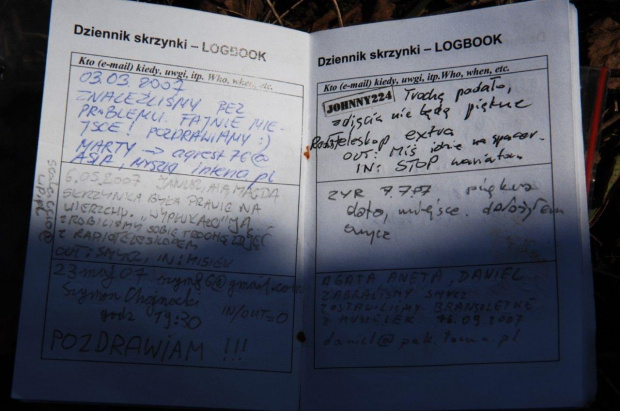 Dziennik skrzynki – LOGBOOK
Kto (e-mail) kiedy, uwagi, itp. Who, when, etc.
03.03.2007
ZNALEŹLIŚMY BEZ
PROBLEMU. FAJNE MIE-
JSCE! POZDRAWIAMY :)
MARTY → agrest76@
ASIA, MYSZA interia.pl
6.05.2007 JANUSZ, MAGDA
SKRZYNKA BYŁA PRAWIE NA
WIERZCHU. "WYPŁUKAŁO" JĄ
ZROBILIŚMY SOBIE TROCHĘ ZDJĘĆ
Z RADIOTELESKOPEM
OUT: SMYCZ, IN: MISIU
23 maj 07
Szymon
godz 19:30 IN/OUT=0
POZDRAWIAM !!!
Dziennik skrzynki – LOGBOOK
Kto (e-mail) kiedy, uwagi, itp. Who, when, etc.
JOHNNY224 Trochę padało,
zdjęcia nie będą piękne
Radioteleskop extra
OUT: Miś idzie na spacer.
IN: STOP wariatom
ZYR 7.7.07 piękna
data, miejsce. dołożyłem
smycz
AGATA ANETA, DANIEL
ZABRALIŚMY SMYCZ
ZOSTAWILIŚMY BRANZOLETKĘ
Z MUSZELEK 16.09.2007